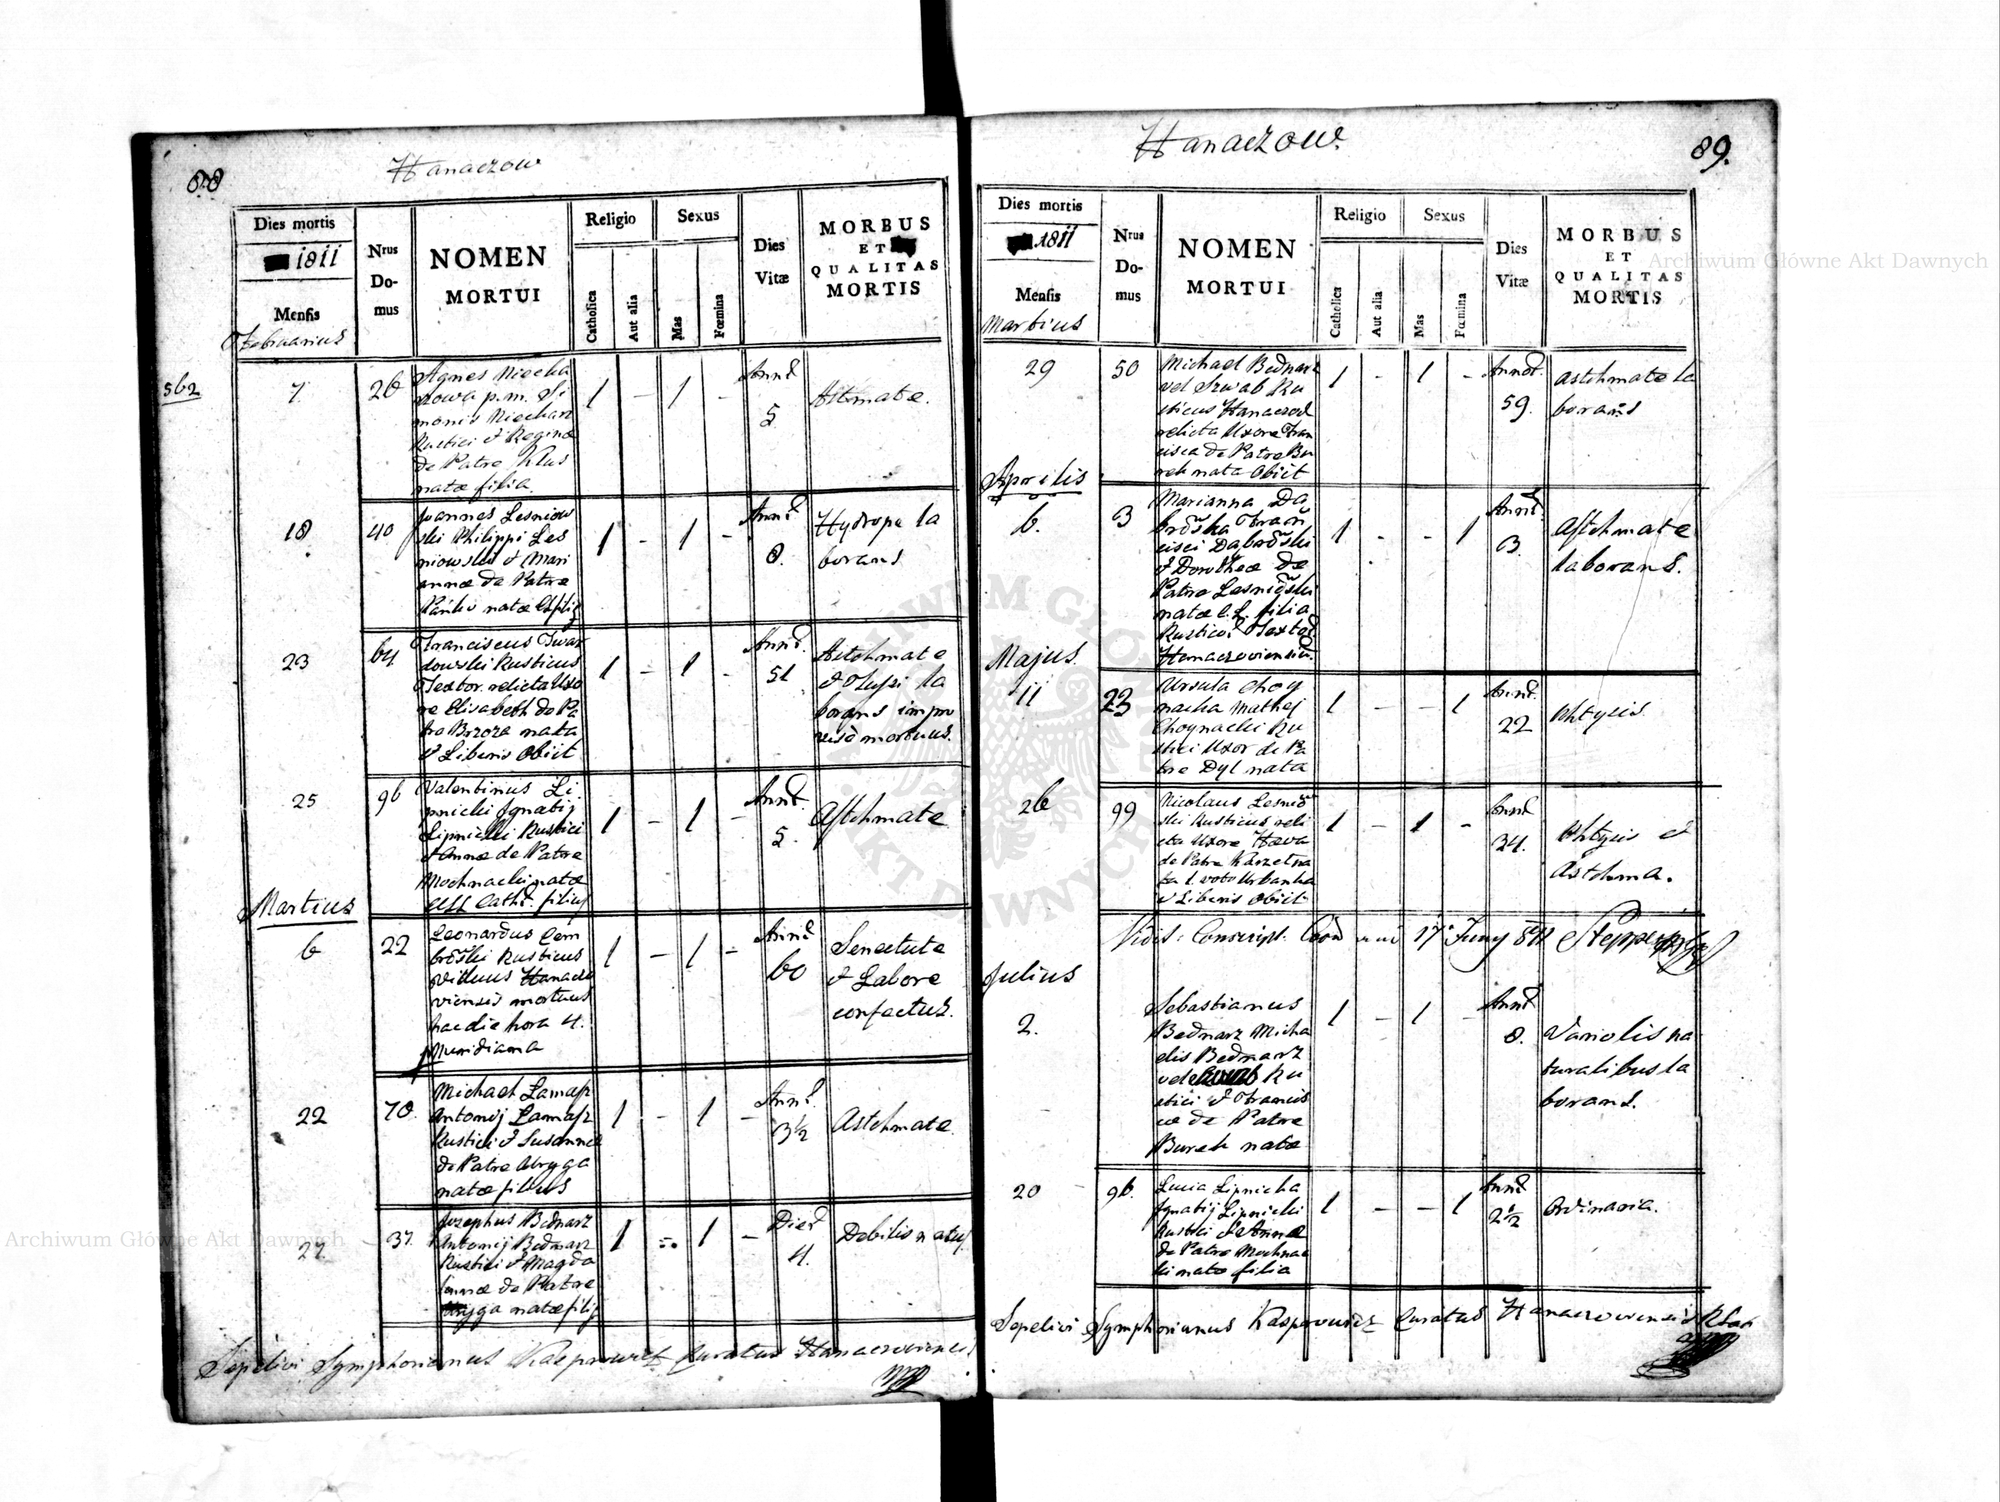 88
Hanaczow
Dies mortis
1811
Mensis
Februarius
Nrus
Do-
mus
NOMEN
MORTUI
Religio
Catholica
Aut alia
Sexus
Mas
Fœmina
Dies
Vitæ
MORBUS
ET
QUALITAS
MORTIS
562
7.
26
Agnes Niecha
rzowa p.m. Si
monis Niecharz
Rustici & Reginæ
de Patre Klus
natæ filia.
1 - 1 -
Annor.
5
Astmate.
18
40
Joannes Lesniow
ski Philippi Les
niowski & Mari
annæ de Patre
natæ
1 - 1 -
8.
Hydrope la
borans
23
64
Franciscus Twar
dowski Rusticus
Textor. relicta Uxo
re Elisabeth de Pa
tre Brzoza nata
& Liberis Obiit
1 - 1 -
51
Astchmate
& Tussi la
borans impro
viso mortuus.
25
96
Valentinus Li
pnicki Jgnatij
Lipnicki Rustici
& Annæ de Patre
Mochnacki natæ
filius
1 - 1 -
5.
Astchmate
Martius
6
22
Leonardus Cem
Rusticus
viduus Hanaczo
viensis mortuus
hac die hora 4.
Meridiana
1 - 1 -
60
Senectute
& Labore
confectus.
22
70.
Michael Lamasz
Antonij Lamasz
Rustici & Susannæ
de Patre Wryga
natæ filius
1 - 1 -
3½
Astchmate.
27
37.
Josephus Bednarz
Antonij Bednarz
Rustici & Magda
lennæ de Patre
natæ filij
1 - 1 -
Dier.
4.
Debilis natus
Sepelivi Symphorianus Kasprowicz Curatus Hanaczoviensis
89.
Hanaczow.
Dies mortis
1811
Mensis
Martius
Nrus
Do-
mus
NOMEN
MORTUI
Religio
Catholica
Aut alia
Sexus
Mas
Fœmina
Dies
Vitæ
MORBUS
ET
QUALITAS
MORTIS
29
50
Michael Bednarz
vel Szwab Ru
sticus Hanaczov
relicta Uxore Fran
cisca de Patre Bu
rek nata Obiit
1 - 1 -
59.
Astchmate la
borans
Aprilis
6.
3
Marianna Da
Fran
cisci
& Dorotheæ de
Patre
natæ C.L. filia
Rusticor. Textor.
Hanaczoviensium.
1 - - 1
3.
Astchmate
laborans.
Majus
11
23
Ursula Choy
nacka Mathej
Choynacki Ru
stici Uxor de Pa
tre Dyl nata
1 - - 1
22
Phtysis
26
99
Nicolaus
ski Rusticus reli
cta Uxore Hæva
de Patre
ta 1. voto Urbanka
& Liberis Obiit
1 - 1 -
34.
Phtysis et
Astchma.
Vidi: Conscript. 17 Juny 811
Julius
2.
Sebastianus
Bednarz Micha
elis Bednarz
vel Ru
stici & Francis
cæ de Patre
Burek natæ
1 - 1 -
8.
Variolis na
turalibus la
borans.
20
96.
Lucia Lipnicka
Jgnatij Lipnicki
Rustici & Annæ
de Patre Mochnac
ki natæ filia
1 - - 1
2½
Ordinaria.
Sepelivi Symphorianus Kasprowicz Curatus Hanaczoviensis
Archiwum Główne Akt Dawnych
Archiwum Główne Akt Dawnych
ARCHIWUM GŁÓWNE AKT DAWNYCH